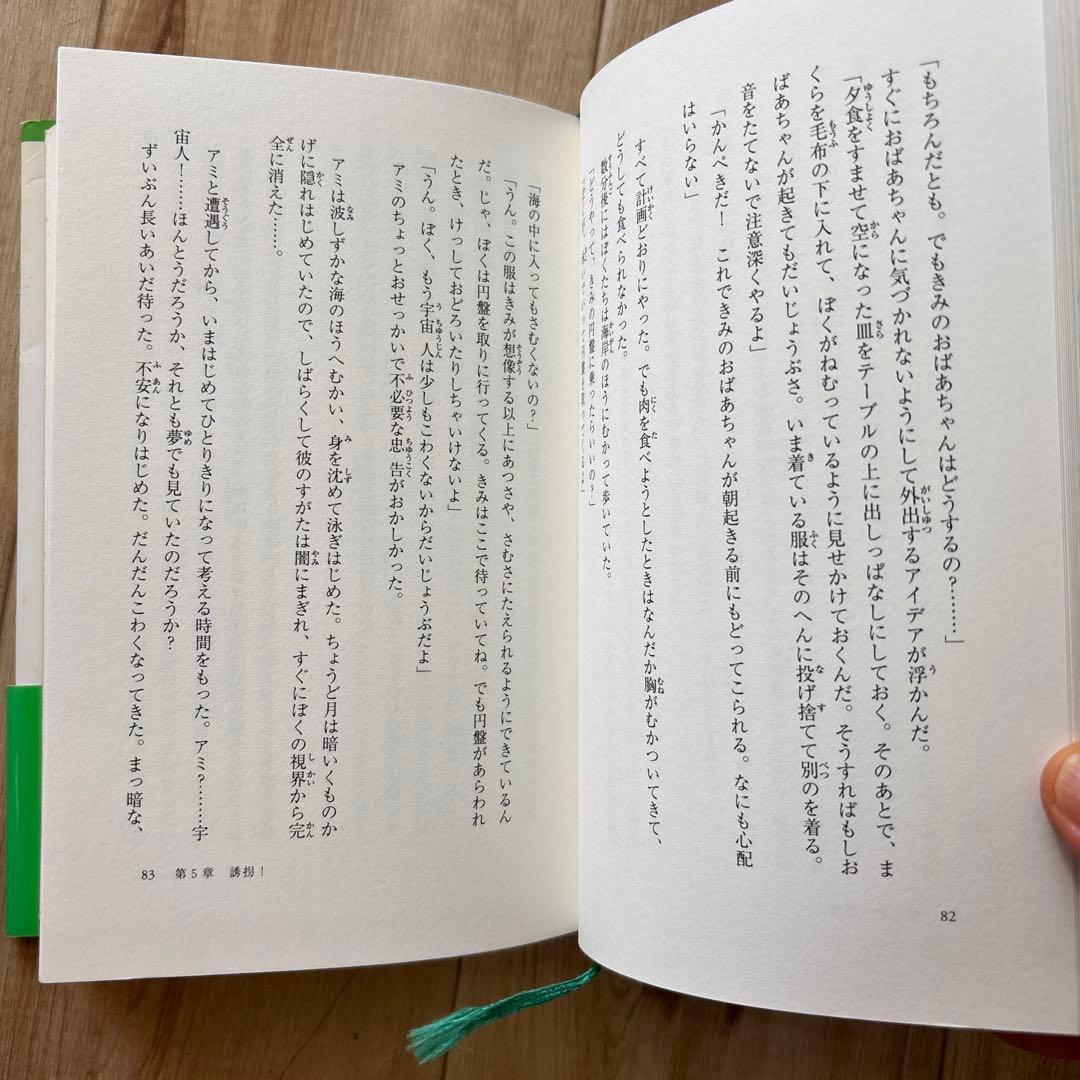 「もちろんだとも。でもきみのおばあちゃんはどうするの？……」
すぐにおばあちゃんに気づかれないようにして外出するアイデアが浮かんだ。
「夕食をすませて空になった皿をテーブルの上に出しっぱなしにしておく。そのあとで、ま
くらを毛布の下に入れて、ぼくがねむっているように見せかけておくんだ。そうすればもしお
ばあちゃんが起きてもだいじょうぶさ。いま着ている服はそのへんに投げ捨てて別のを着る。
音をたてないで注意深くやるよ」
「かんぺきだ！　これできみのおばあちゃんが朝起きる前にもどってこられる。なにも心配
はいらない」
すべて計画どおりにやった。でも肉を食べようとしたときはなんだか胸がむかついてきて、
どうしても食べられなかった。
数分後にはぼくたちは海岸のほうにむかって歩いていた。
「どうやって、きみの円盤に乗ったらいいの？」
82
「海の中に入ってもさむくないの？」
「うん。この服はきみが想像する以上にあつさや、さむさにたえられるようにできているん
だ。じゃ、ぼくは円盤を取りに行ってくる。きみはここで待っていてね。でも円盤があらわれ
たとき、けっしておどろいたりしちゃいけないよ」
「うん。ぼく、もう宇宙人は少しもこわくないからだいじょうぶだよ」
アミのちょっとおせっかいで不必要な忠告がおかしかった。
アミは波しずかな海のほうへむかい、身を沈めて泳ぎはじめた。ちょうど月は暗いくものか
げに隠れはじめていたので、しばらくして彼のすがたは闇にまぎれ、すぐにぼくの視界から完
全に消えた……。
アミと遭遇してから、いまはじめてひとりきりになって考える時間をもった。アミ？……宇
宙人！……ほんとうだろうか、それとも夢でも見ていたのだろうか？
ずいぶん長いあいだ待った。不安になりはじめた。だんだんこわくなってきた。まっ暗な、
83　第5章　誘拐！